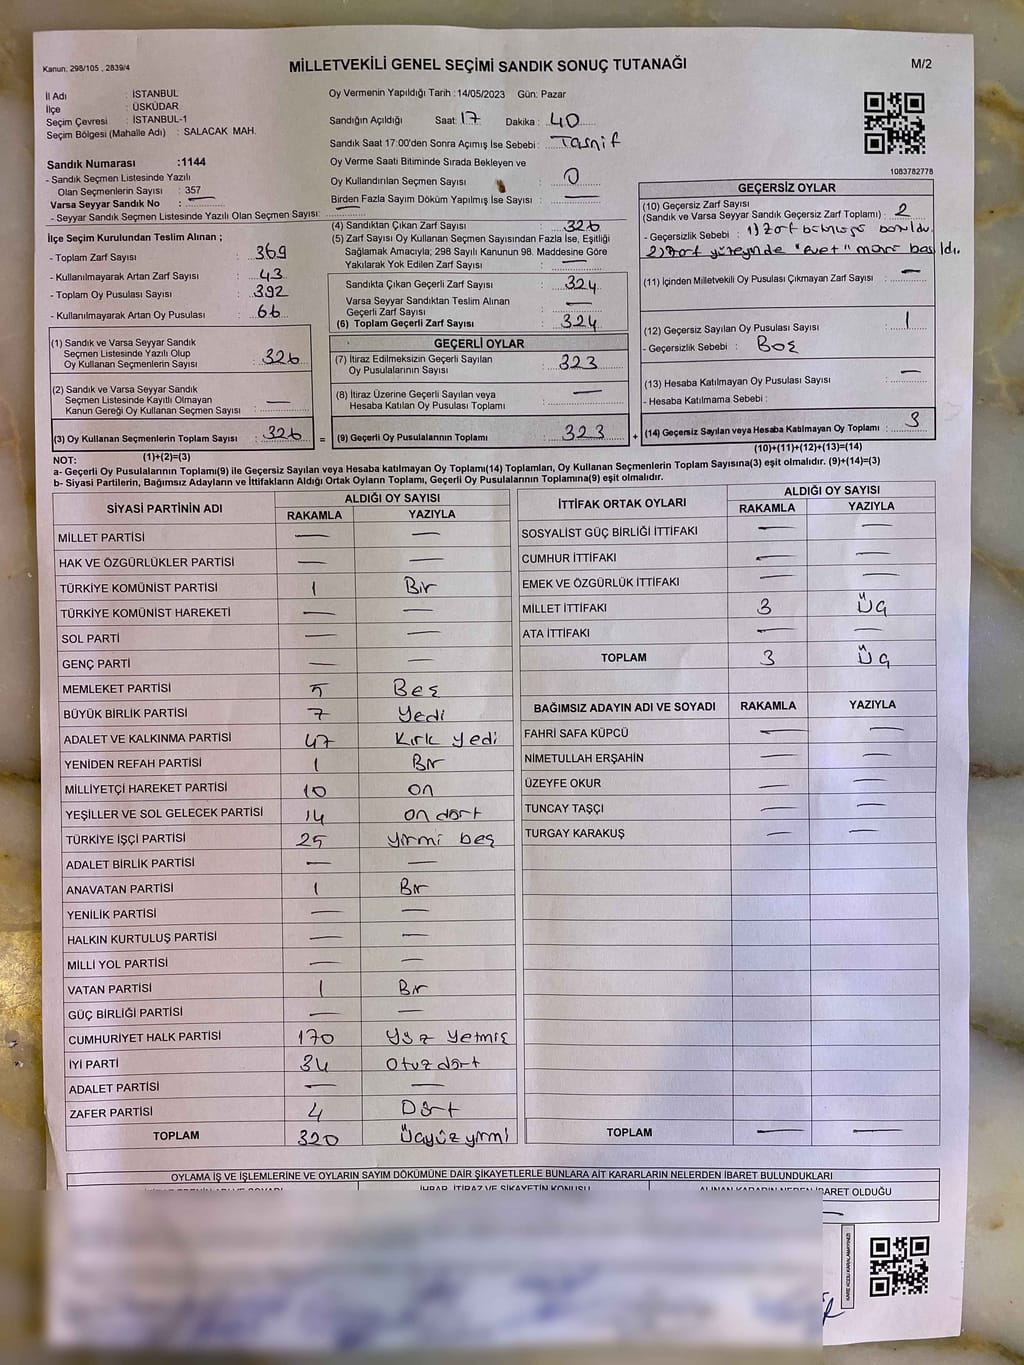 Kanun. 298/105 , 2839/4
MİLLETVEKİLİ GENEL SEÇİMİ SANDIK SONUÇ TUTANAĞI
M/2
İl Adı : İSTANBUL
İlçe : ÜSKÜDAR
Seçim Çevresi : İSTANBUL-1
Seçim Bölgesi (Mahalle Adı) : SALACAK MAH.
Sandık Numarası :1144
- Sandık Seçmen Listesinde Yazılı
Olan Seçmenlerin Sayısı : 357
Varsa Seyyar Sandık No : —
- Seyyar Sandık Seçmen Listesinde Yazılı Olan Seçmen Sayısı: —
Oy Vermenin Yapıldığı Tarih :14/05/2023 Gün: Pazar
Sandığın Açıldığı Saat: 17 Dakika : 40
Sandık Saat 17:00'den Sonra Açımış İse Sebebi : Tasnif
Oy Verme Saati Bitiminde Sırada Bekleyen ve
Oy Kullandırılan Seçmen Sayısı : 0
Birden Fazla Sayım Döküm Yapılmış İse Sayısı : —
1083782778
İlçe Seçim Kurulundan Teslim Alınan ;
- Toplam Zarf Sayısı : 369
- Kullanılmayarak Artan Zarf Sayısı : 43
- Toplam Oy Pusulası Sayısı : 392
- Kullanılmayarak Artan Oy Pusulası : 66
(1) Sandık ve Varsa Seyyar Sandık
Seçmen Listesinde Yazılı Olup
Oy Kullanan Seçmenlerin Sayısı : 326
(2) Sandık ve Varsa Seyyar Sandık
Seçmen Listesinde Kayıtlı Olmayan
Kanun Gereği Oy Kullanan Seçmen Sayısı : —
(3) Oy Kullanan Seçmenlerin Toplam Sayısı : 326 =
(1)+(2)=(3)
(4) Sandıktan Çıkan Zarf Sayısı : 326
(5) Zarf Sayısı Oy Kullanan Seçmen Sayısından Fazla İse, Eşitliği
Sağlamak Amacıyla; 298 Sayılı Kanunun 98. Maddesine Göre
Yakılarak Yok Edilen Zarf Sayısı : —
Sandıkta Çıkan Geçerli Zarf Sayısı : 324
Varsa Seyyar Sandıktan Teslim Alınan
Geçerli Zarf Sayısı : —
(6) Toplam Geçerli Zarf Sayısı : 324
GEÇERLİ OYLAR
(7) İtiraz Edilmeksizin Geçerli Sayılan
Oy Pusulalarının Sayısı : 323
(8) İtiraz Üzerine Geçerli Sayılan veya
Hesaba Katılan Oy Pusulası Toplamı : —
(9) Geçerli Oy Pusulalarının Toplamı : 323 +
GEÇERSİZ OYLAR
(10) Geçersiz Zarf Sayısı
(Sandık ve Varsa Seyyar Sandık Geçersiz Zarf Toplamı) : 2
- Geçersizlik Sebebi : 1) Zarf
2) Zarf yüzeyinde "Evet" mührü basıldı.
(11) İçinden Milletvekili Oy Pusulası Çıkmayan Zarf Sayısı : —
(12) Geçersiz Sayılan Oy Pusulası Sayısı : 1
- Geçersizlik Sebebi : Boş
(13) Hesaba Katılmayan Oy Pusulası Sayısı : —
- Hesaba Katılmama Sebebi :
(14) Geçersiz Sayılan veya Hesaba Katılmayan Oy Toplamı : 3
(10)+(11)+(12)+(13)=(14)
NOT:
a- Geçerli Oy Pusulalarının Toplamı(9) ile Geçersiz Sayılan veya Hesaba katılmayan Oy Toplamı(14) Toplamları, Oy Kullanan Seçmenlerin Toplam Sayısına(3) eşit olmalıdır. (9)+(14)=(3)
b- Siyasi Partilerin, Bağımsız Adayların ve İttifakların Aldığı Ortak Oyların Toplamı, Geçerli Oy Pusulalarının Toplamına(9) eşit olmalıdır.
SİYASİ PARTİNİN ADI ALDIĞI OY SAYISI
RAKAMLA YAZIYLA
MİLLET PARTİSİ — —
HAK VE ÖZGÜRLÜKLER PARTİSİ — —
TÜRKİYE KOMÜNİST PARTİSİ 1 Bir
TÜRKİYE KOMÜNİST HAREKETİ — —
SOL PARTİ — —
GENÇ PARTİ — —
MEMLEKET PARTİSİ 5 Beş
BÜYÜK BİRLİK PARTİSİ 7 Yedi
ADALET VE KALKINMA PARTİSİ 47 Kırk yedi
YENİDEN REFAH PARTİSİ 1 Bir
MİLLİYETÇİ HAREKET PARTİSİ 10 on
YEŞİLLER VE SOL GELECEK PARTİSİ 14 on dört
TÜRKİYE İŞÇİ PARTİSİ 25 yirmi beş
ADALET BİRLİK PARTİSİ — —
ANAVATAN PARTİSİ 1 Bir
YENİLİK PARTİSİ — —
HALKIN KURTULUŞ PARTİSİ — —
MİLLİ YOL PARTİSİ — —
VATAN PARTİSİ 1 Bir
GÜÇ BİRLİĞİ PARTİSİ — —
CUMHURİYET HALK PARTİSİ 170 Yüz Yetmiş
İYİ PARTİ 34 Otuz dört
ADALET PARTİSİ — —
ZAFER PARTİSİ 4 Dört
TOPLAM 320 Üçyüz yirmi
İTTİFAK ORTAK OYLARI ALDIĞI OY SAYISI
RAKAMLA YAZIYLA
SOSYALİST GÜÇ BİRLİĞİ İTTİFAKI — —
CUMHUR İTTİFAKI — —
EMEK VE ÖZGÜRLÜK İTTİFAKI — —
MİLLET İTTİFAKI 3 Üç
ATA İTTİFAKI — —
TOPLAM 3 Üç
BAĞIMSIZ ADAYIN ADI VE SOYADI RAKAMLA YAZIYLA
FAHRİ SAFA KÜPCÜ — —
NİMETULLAH ERŞAHİN — —
ÜZEYFE OKUR — —
TUNCAY TAŞÇI — —
TURGAY KARAKUŞ — —
TOPLAM — —
OYLAMA İŞ VE İŞLEMLERİNE VE OYLARIN SAYIM DÖKÜMÜNE DAİR ŞİKAYETLERLE BUNLARA AİT KARARLARIN NELERDEN İBARET BULUNDUKLARI
İHBAR, İTİRAZ VE ŞİKAYETİN KONUSU ALINAN KARARIN NEDEN İBARET OLDUĞU
KARE KODU KARALAMAYINIZ!